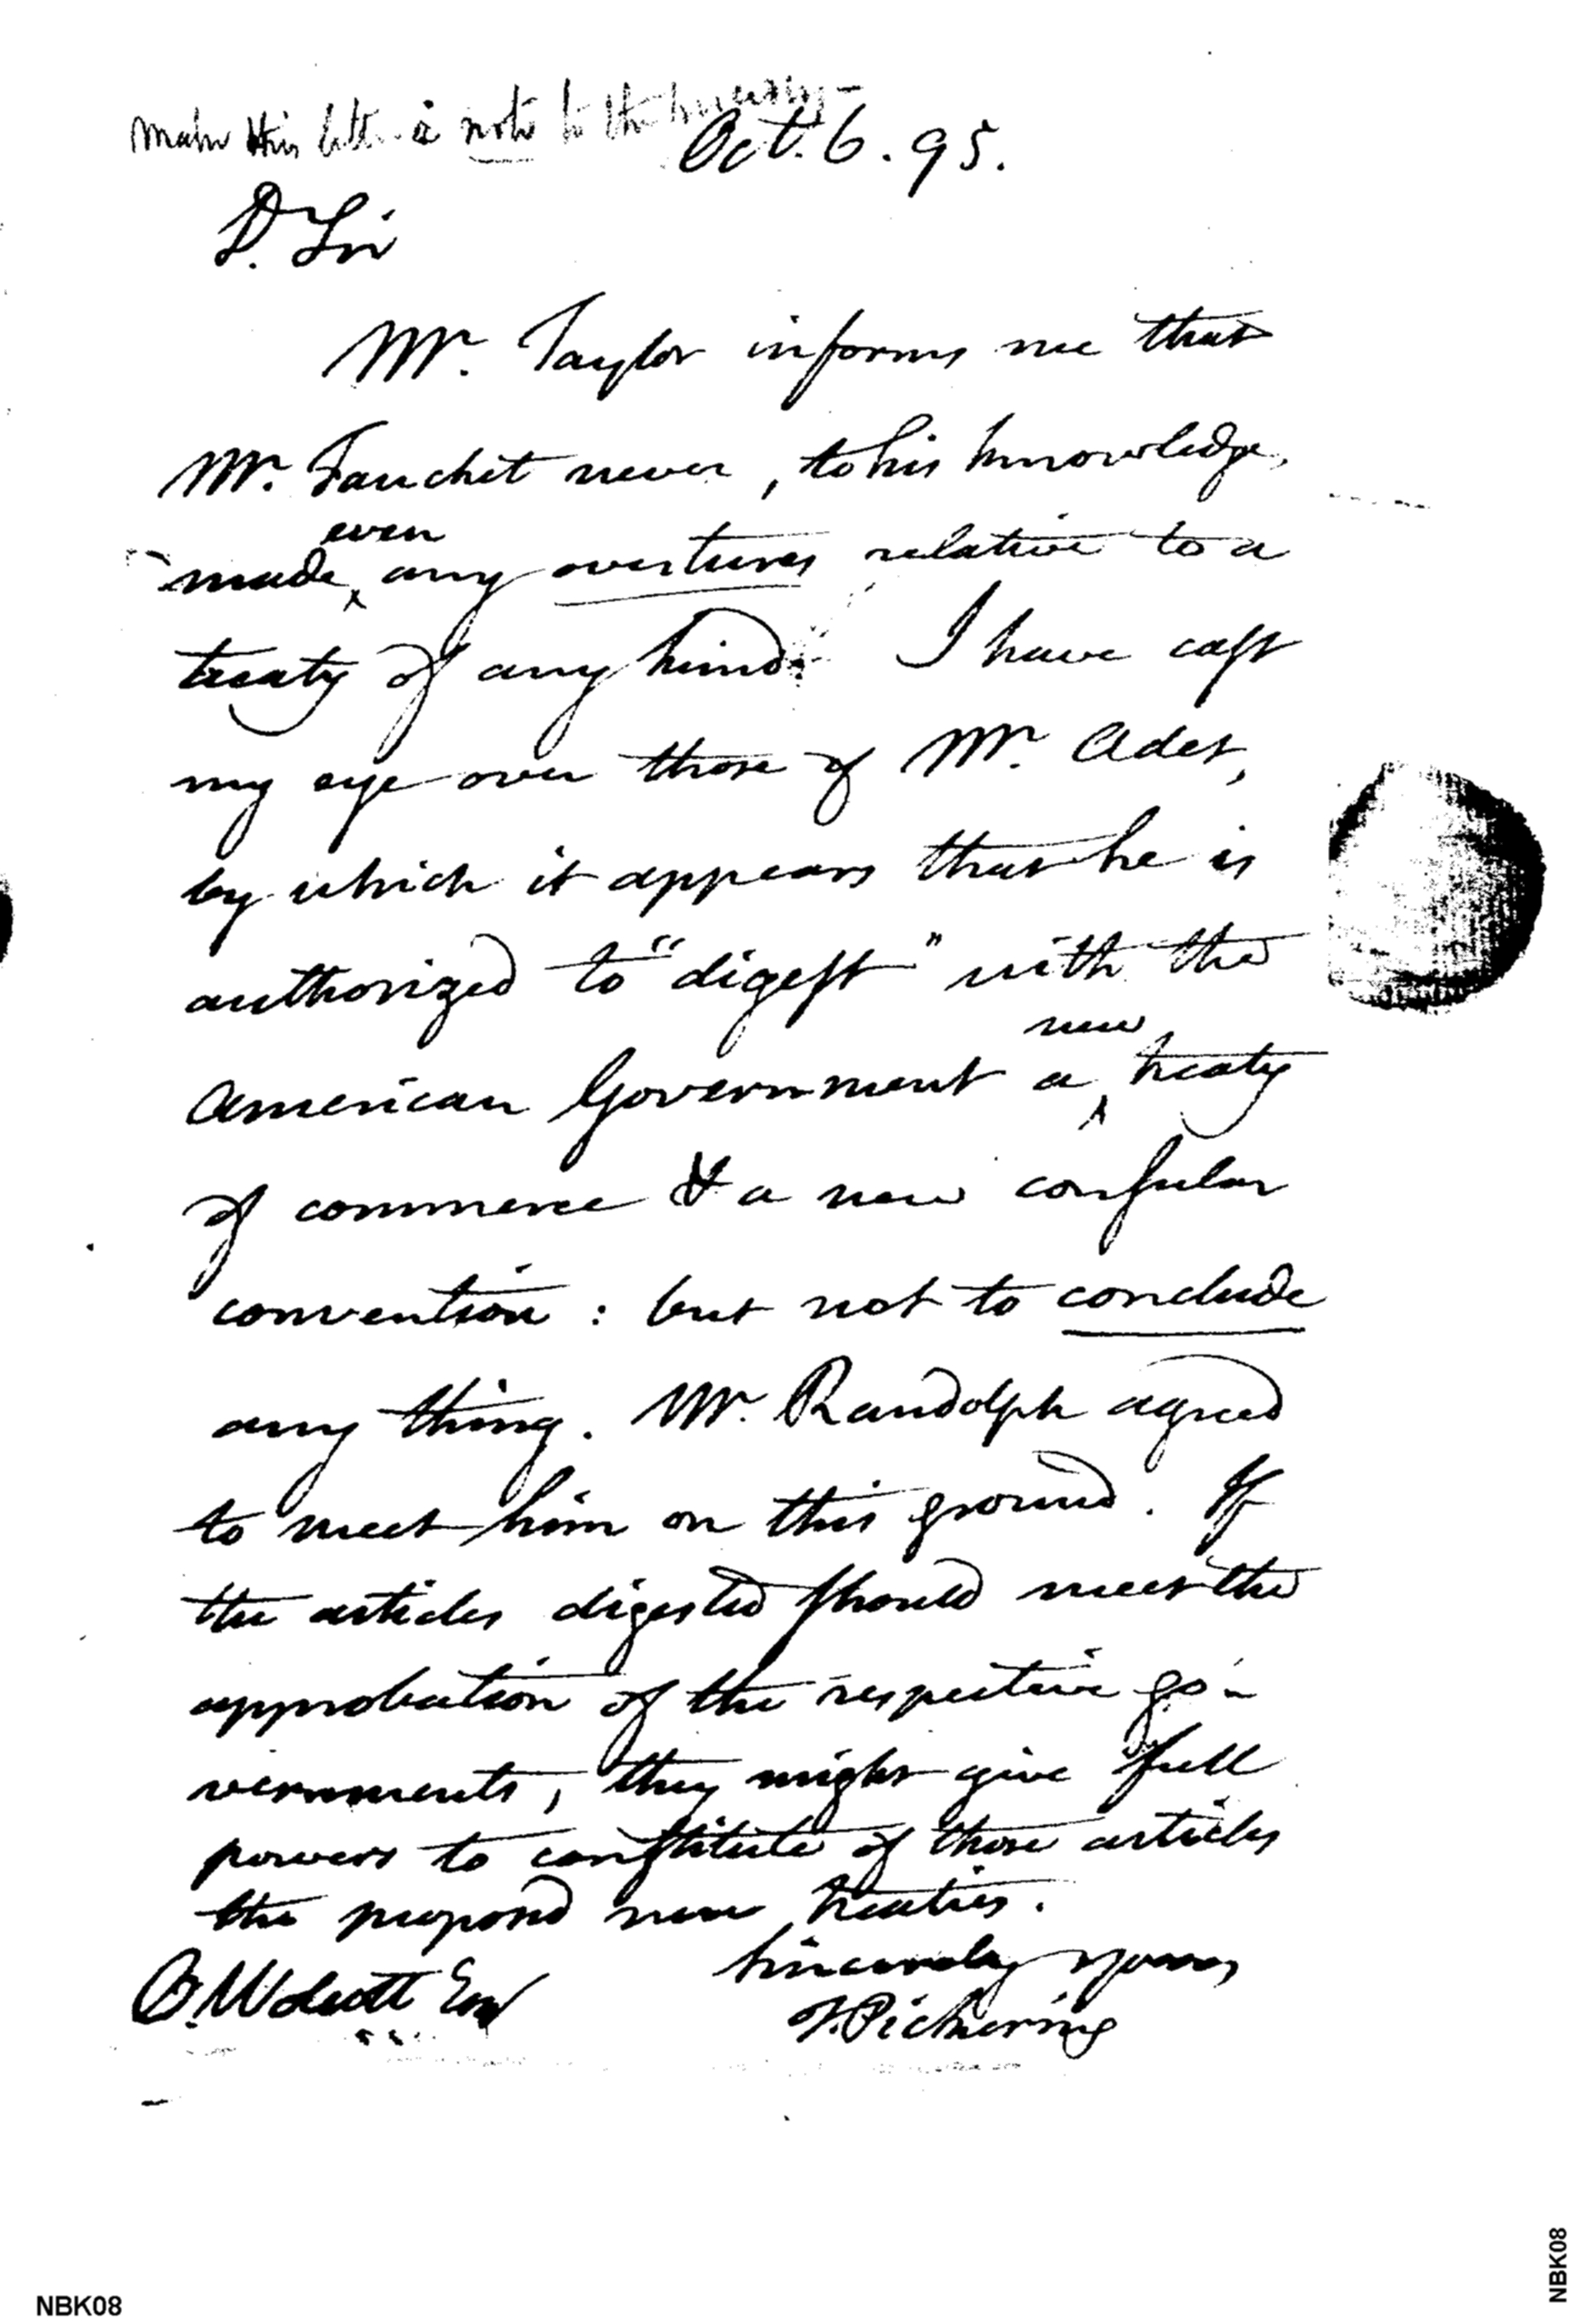 make this letter a note to the
Oct. 6. 95.
D. Sir
Mr. Taylor informs me that
Mr. Fauchet never, to his knowledge,
even
made any overtures relative to a
treaty of any kind. I have cast
my eye over those of Mr. Adet,
by which it appears that he is
authorized to "digest" with the
new
American Government a treaty
of commerce & a new consular
convention: but not to conclude
any thing. Mr. Randolph agreed
to meet him on this ground. If
the articles digested should meet the
approbation of the respective go-
vernments, they might give full
powers to constitute of those articles
the proposd new treaties.
sincerely yours
O. Wolcott Esq
T. Pickering
NBK08
NBK08